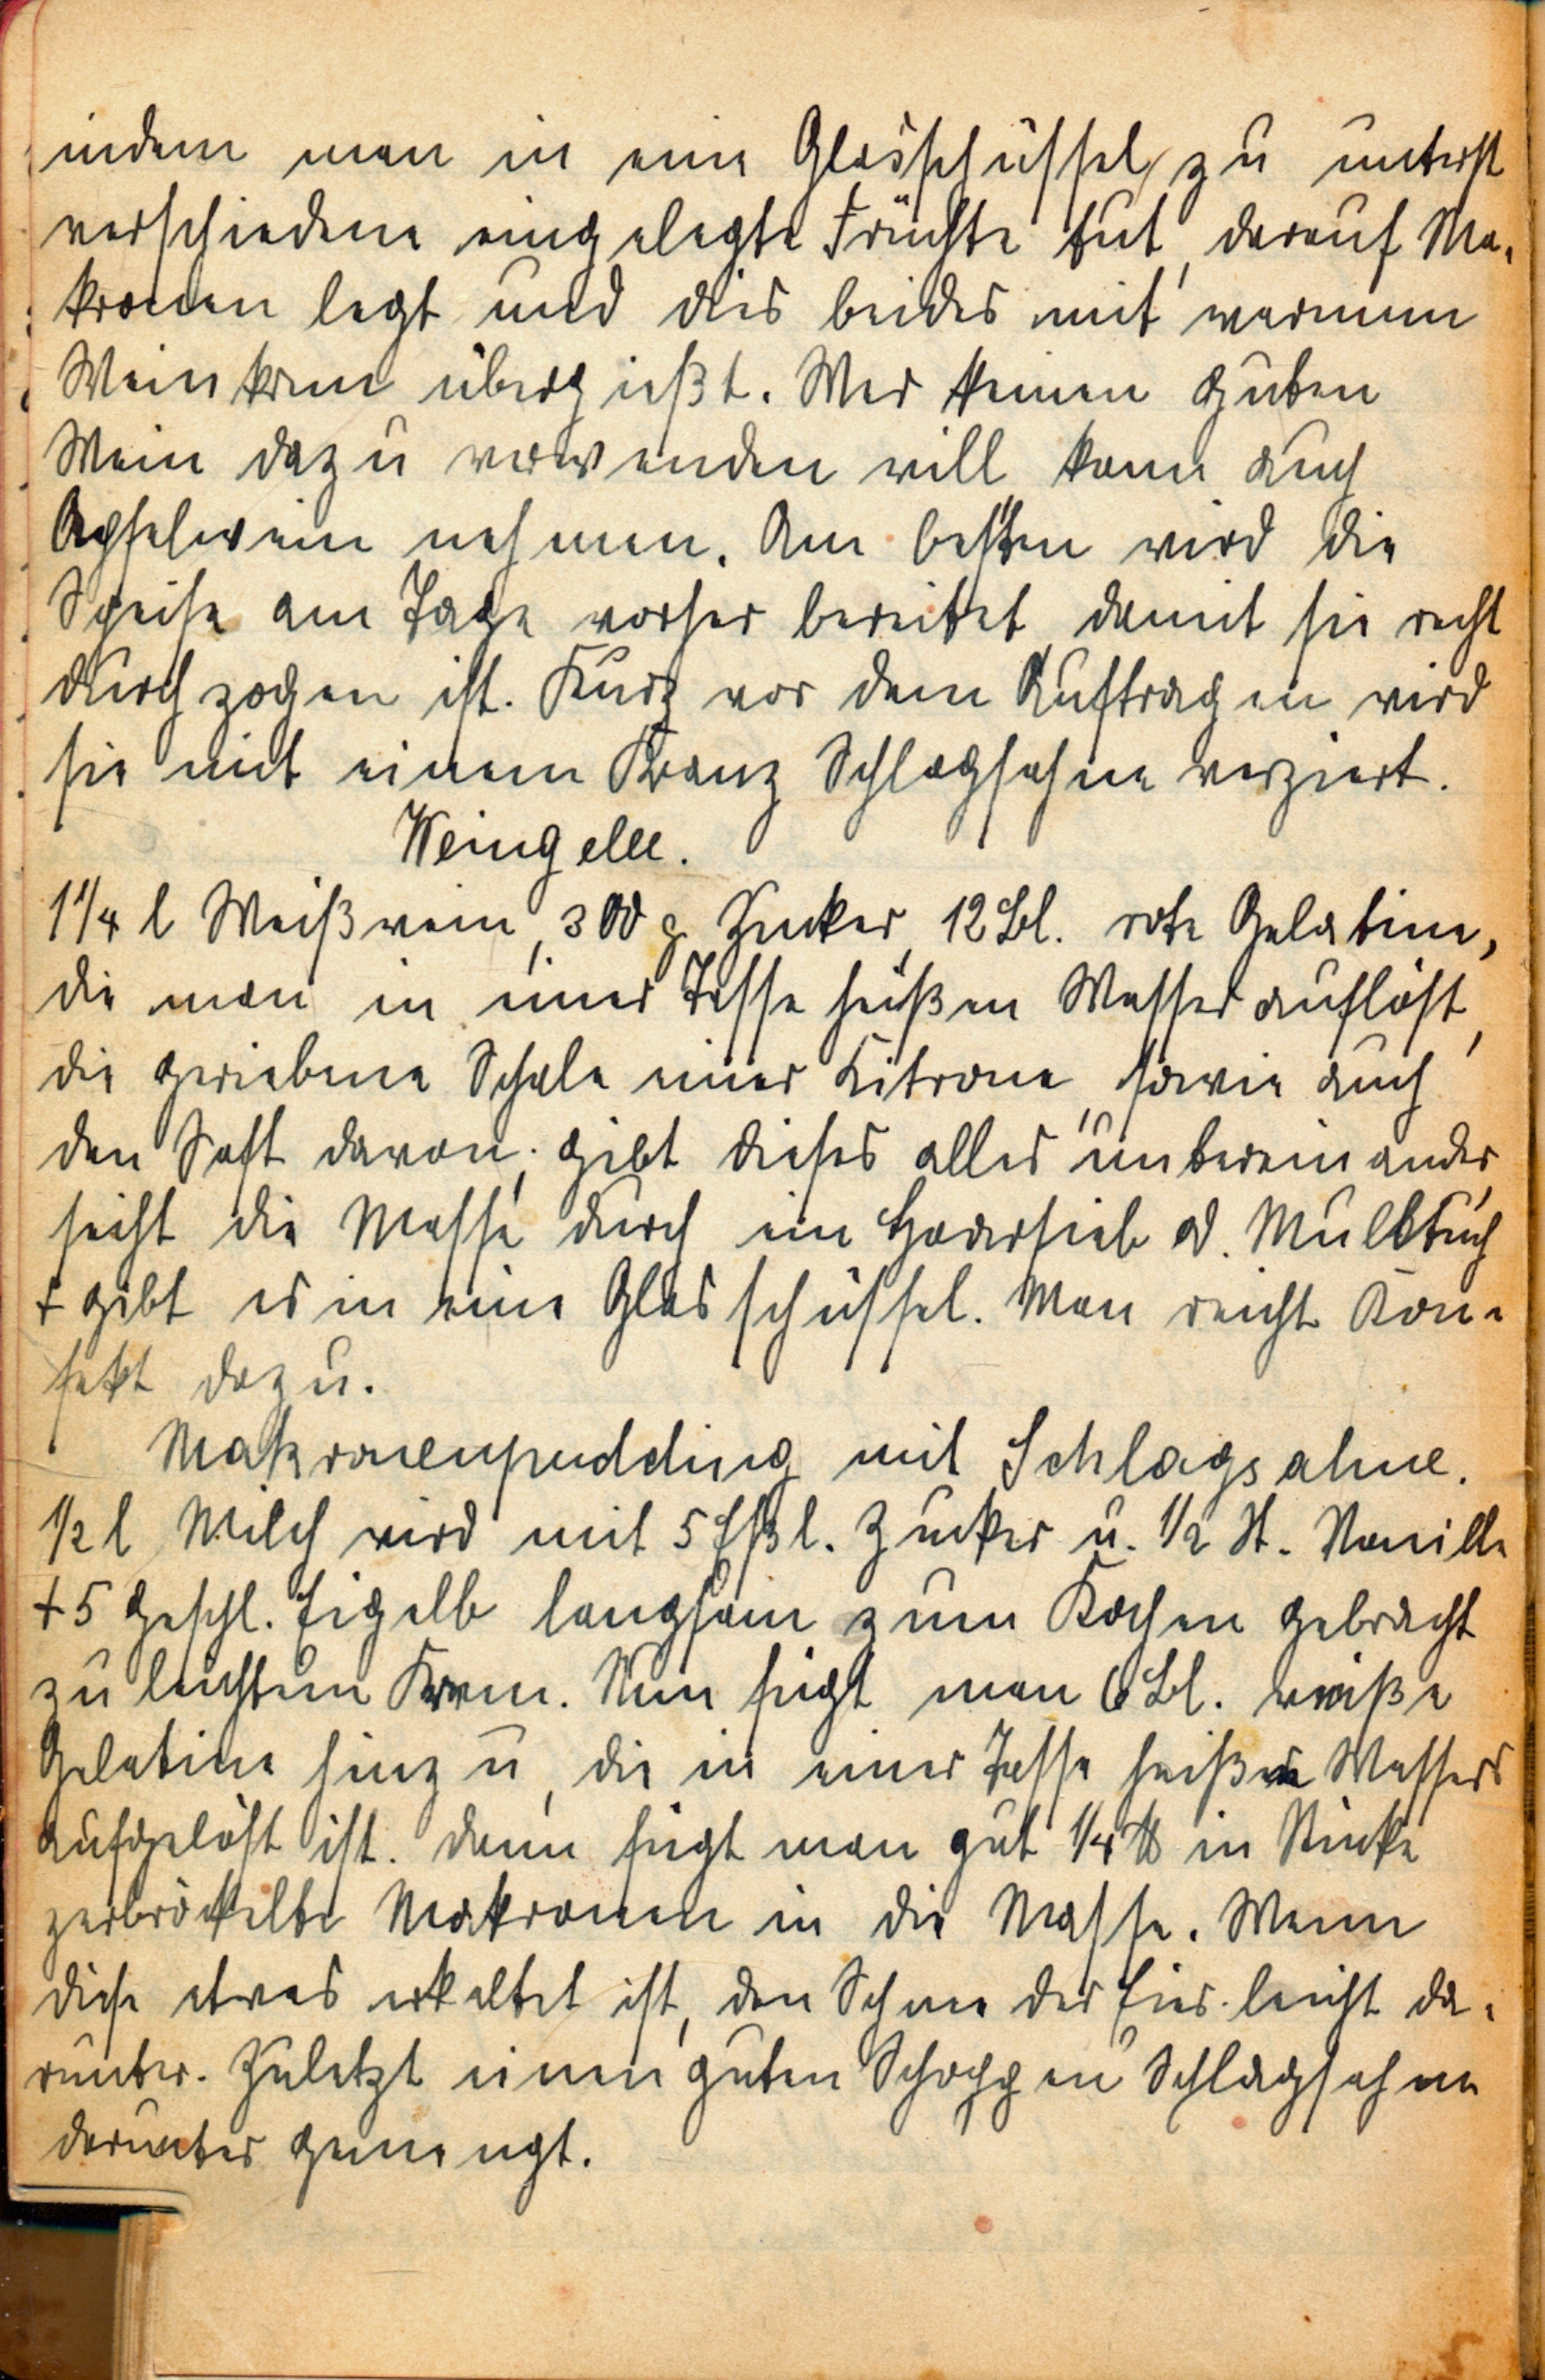 indem man in eine Glasschüssel zu unterst
verschiedene eingelegte Früchte tut, darauf Ma-
kronen legt und dies beides mit warmem
Weinkrem übergießt. Wer keinen guten
Wein dazu verwenden will kann auch
Apfelwein nehmen. Am besten wird die
Speise am Tage vorher bereitet, damit sie recht
durchzogen ist. Kurz vor dem Auftragen wird
sie mit einem Kranz Schlagsahne verziert.
Weingelee.
1 1/4 l Weißwein, 300 g Zucker, 12 Bl. rote Gelatine,
die man in einer Tasse heißen Wasser auflöst,
die geriebene Schale einer Zitrone, sowie auch
den Saft davon; gibt dieses alles untereinander,
seiht die Masse durch ein Haarsieb od. Mulltuch
+ gibt es in eine Glasschüssel. Man reicht Kon-
fekt dazu.
Makronenpudding mit Schlagsahne.
1/2 l Milch wird mit 5 Eßl. Zucker u. 1/2 St. Vanille
+ 5 geschl. Eigelb langsam zum Kochen gebracht
zu leichtem Krem. Nun fügt man 6 Bl. weiße
Gelatine hinzu, die in einer Tasse heißen Wassers
aufgelöst ist. Dann fügt man gut 1/4 ℔ in Stücke
zerbröckelte Makronen in die Masse. Wenn
diese etwas erkaltet ist, den Schnee der Eier leicht da-
runter. Zuletzt einen guten Schoppen Schlagsahne
darunter gemengt.